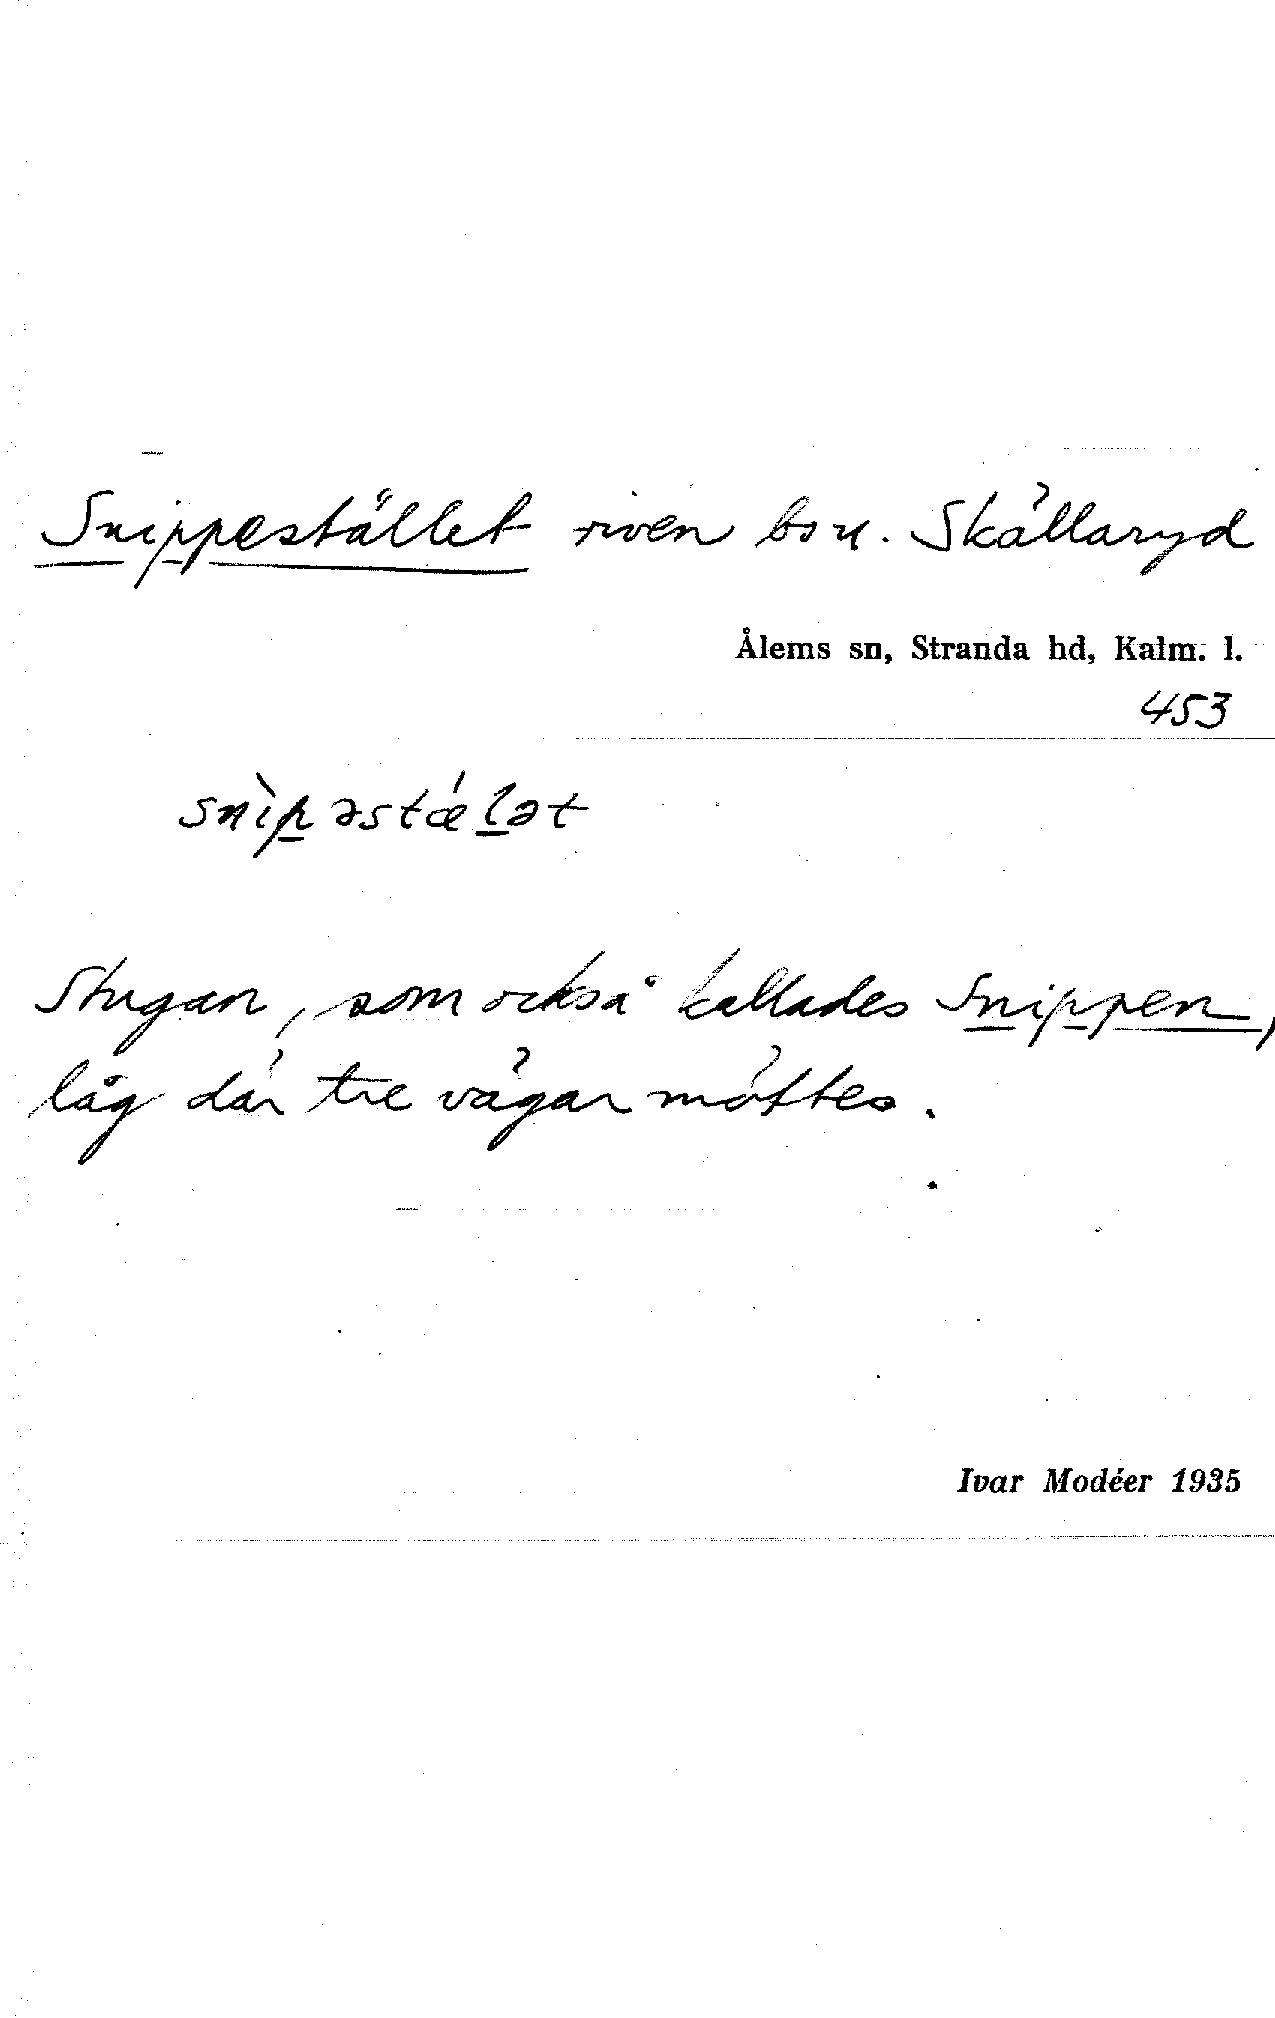 Snippestället riven bs u. Skällaryd
Ålems sn, Stranda hd, Kalm. l.
453
snìpəstǽlət
Stugan, som också kallades Snippen,
låg där tre vägar möttes.
Ivar Modéer 1935